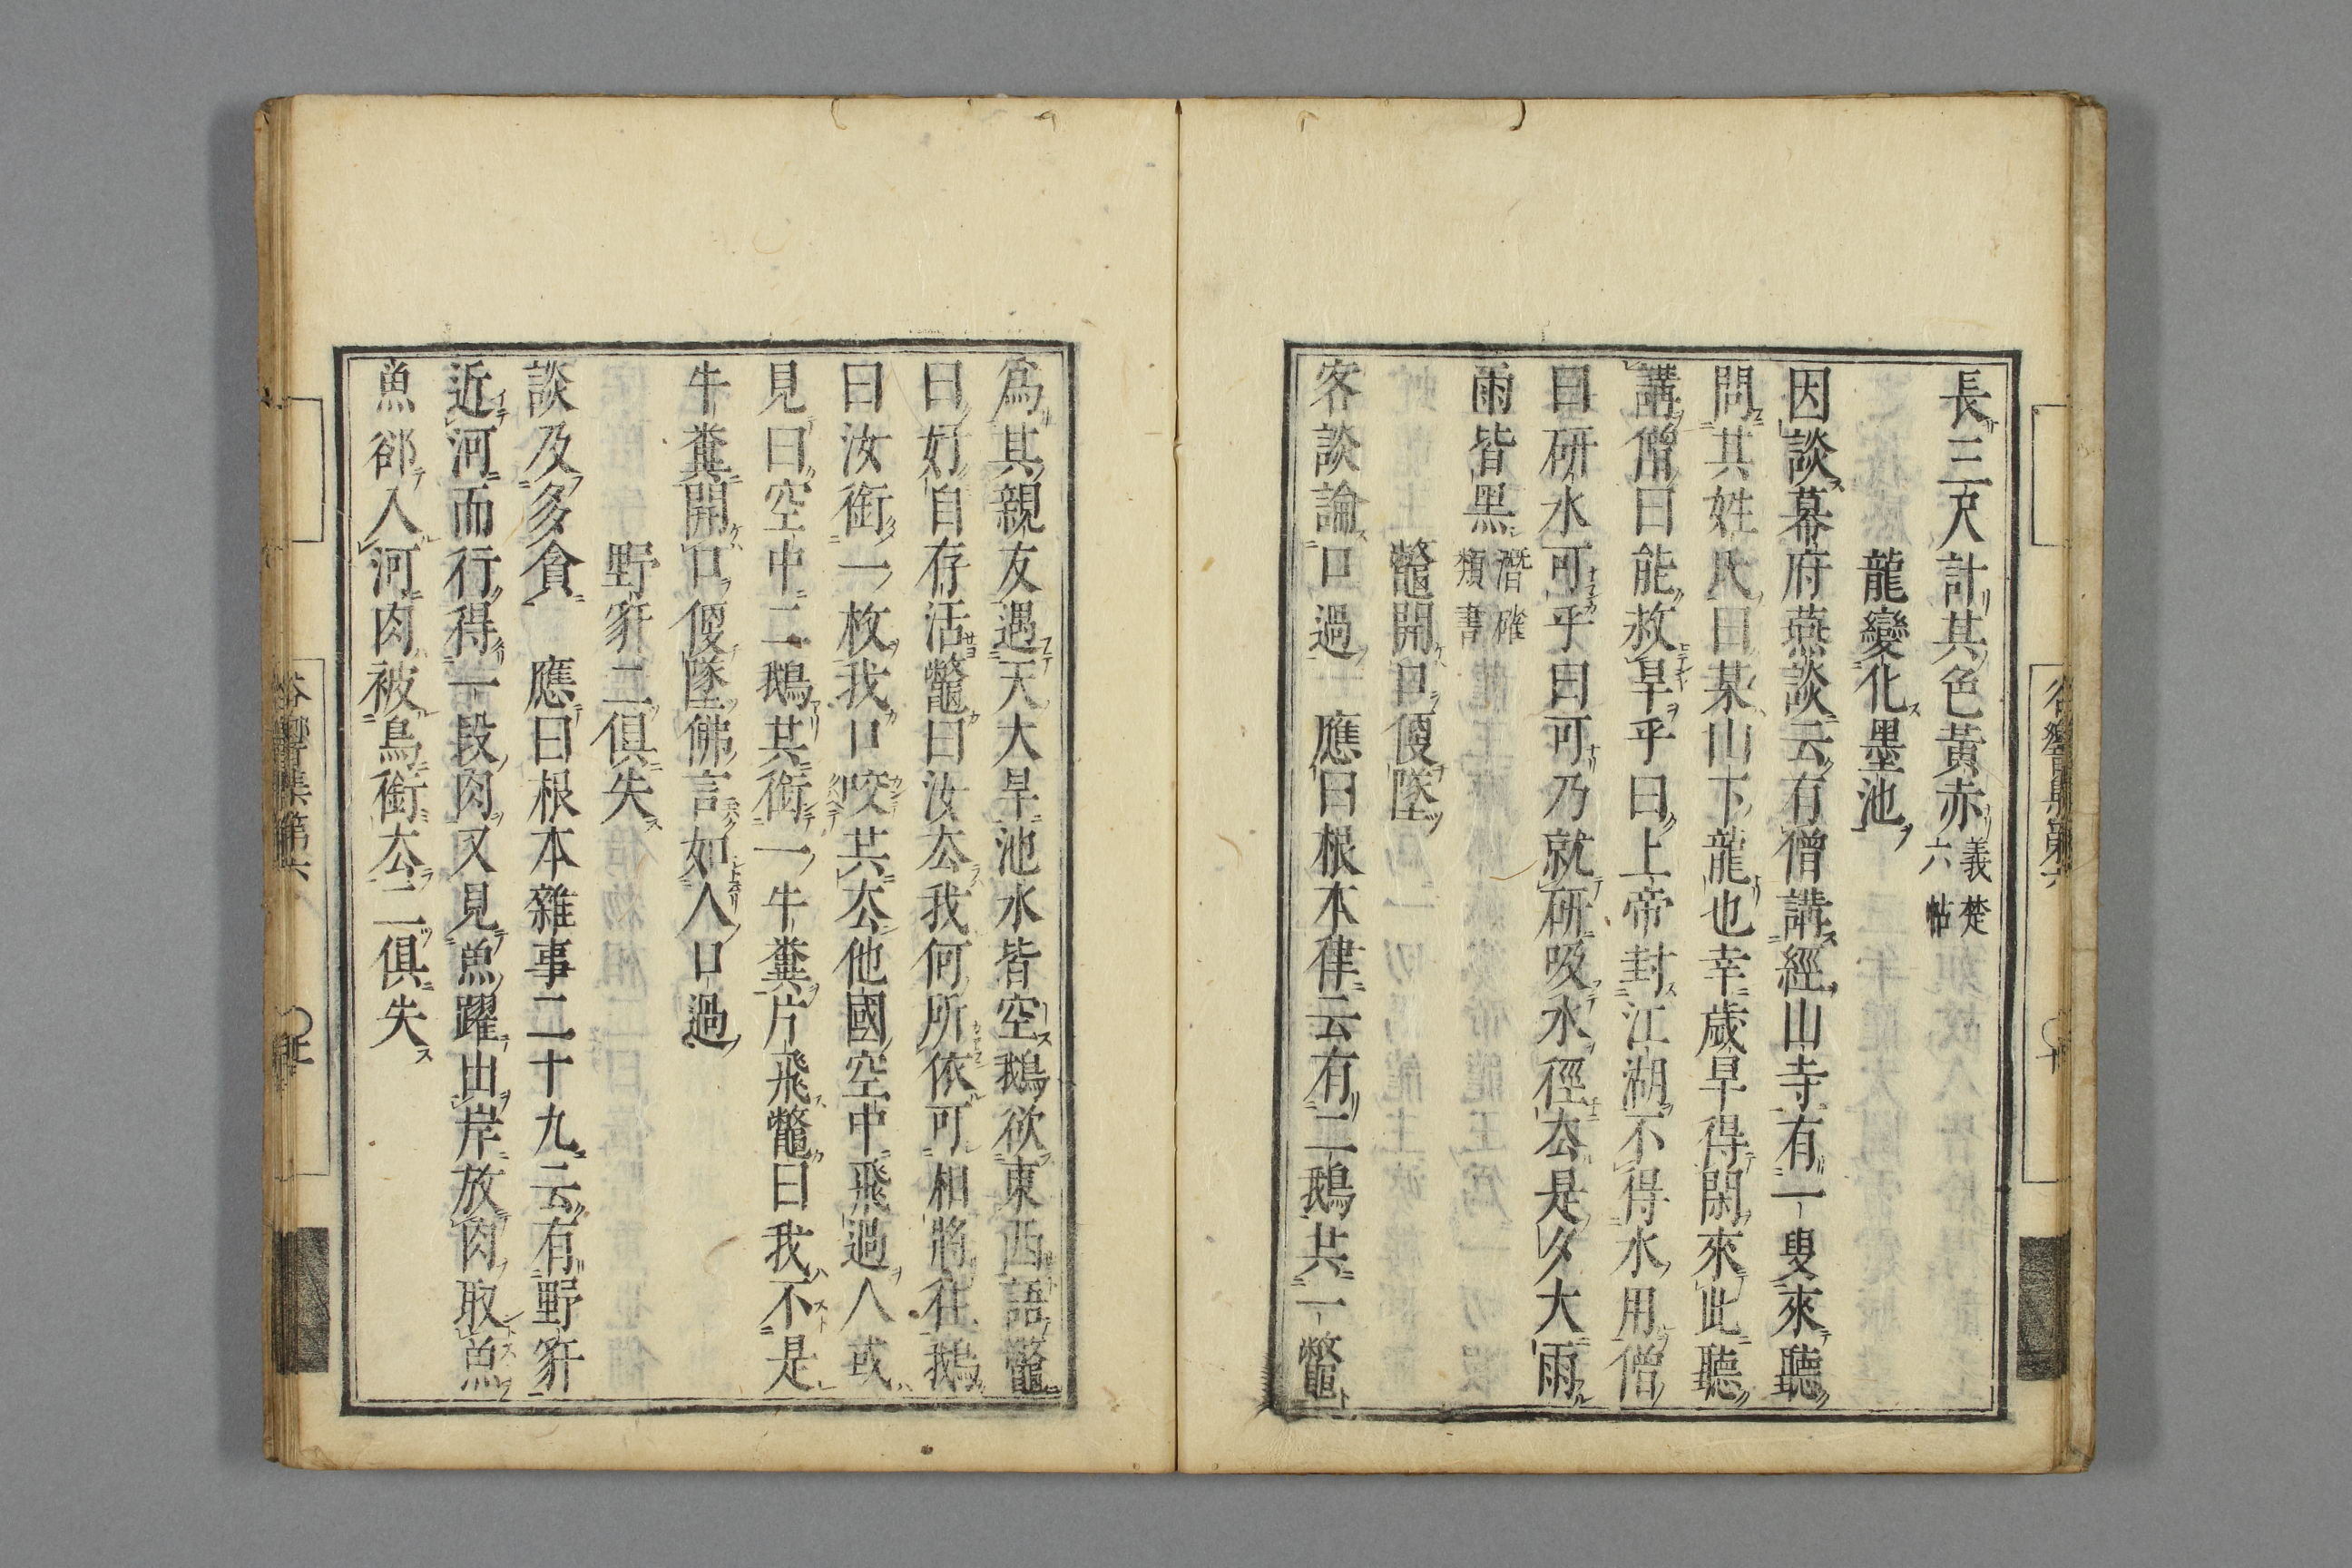 長三尺計其色黃赤義楚六帖
龍變化墨池
因談幕府燕談云有僧講經山寺有一叟來聽
問其姓氏曰某山下龍也幸歲旱得閑來此聽
講僧曰能救旱乎曰上帝封江湖不得水用僧
曰研水可乎曰可乃就研吸水徑去是夕大雨
雨皆黑潛確類書
鼈開口便墜
客談論口過 應曰根本律云有二鵝共一鼈
為其親友遇天大旱池水皆空鵝欲東西語鼈
曰好自存活鼈曰汝去我何所依可相將往鵝
曰汝銜一枚我口咬共去他國空中飛過人或
見曰空中二鵝共銜一牛糞片飛鼈曰我不是
牛糞開口便墜佛言如人口過
野豻二俱失
談及多貪 應曰根本雜事二十九云有野豻
近河而行得一段肉又見魚躍出岸放肉取魚
魚卻入河肉被鳥銜去二俱失
谷響集第六